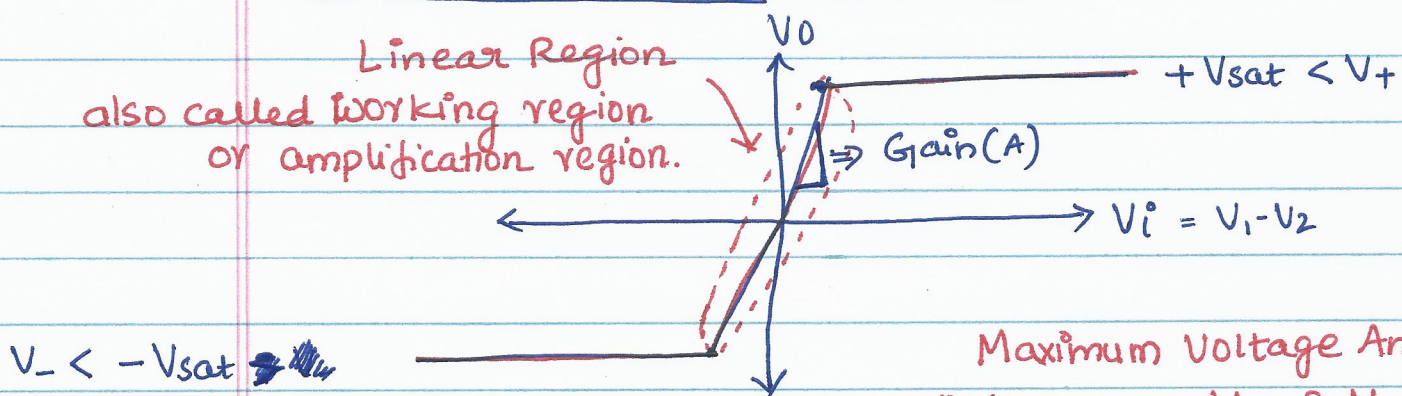 V0
Linear Region
also called working region
or amplification region.
+Vsat < V+
⇒ Gain(A)
Vi = V1-V2
V- < -Vsat
Maximum Voltage